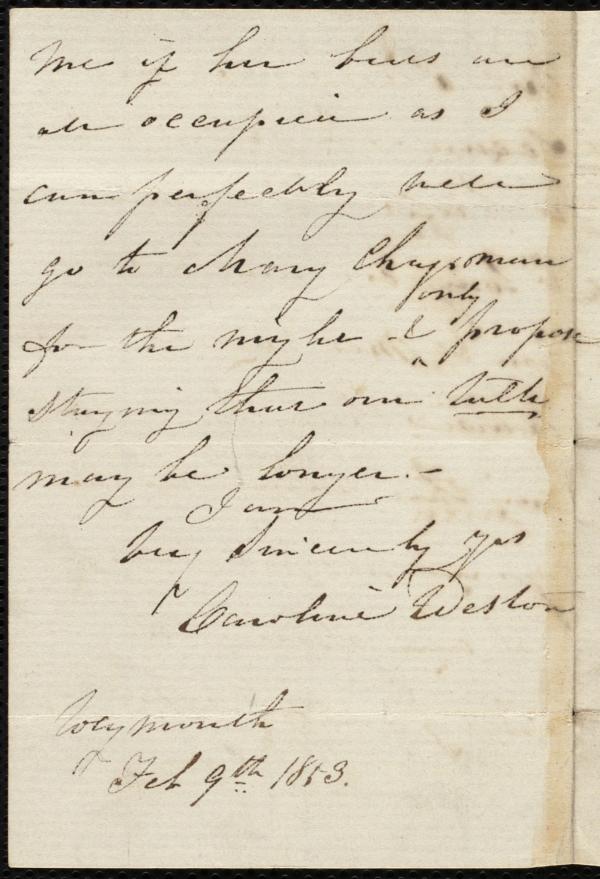 me if her beds are
all occupied as I
can perfectly well
go to Mary Chapman
only
for the night - I propose
staying that our talk
may be longer. -
I am
very sincerely yrs
Caroline Weston
Weymouth
Feb 9th 1853.